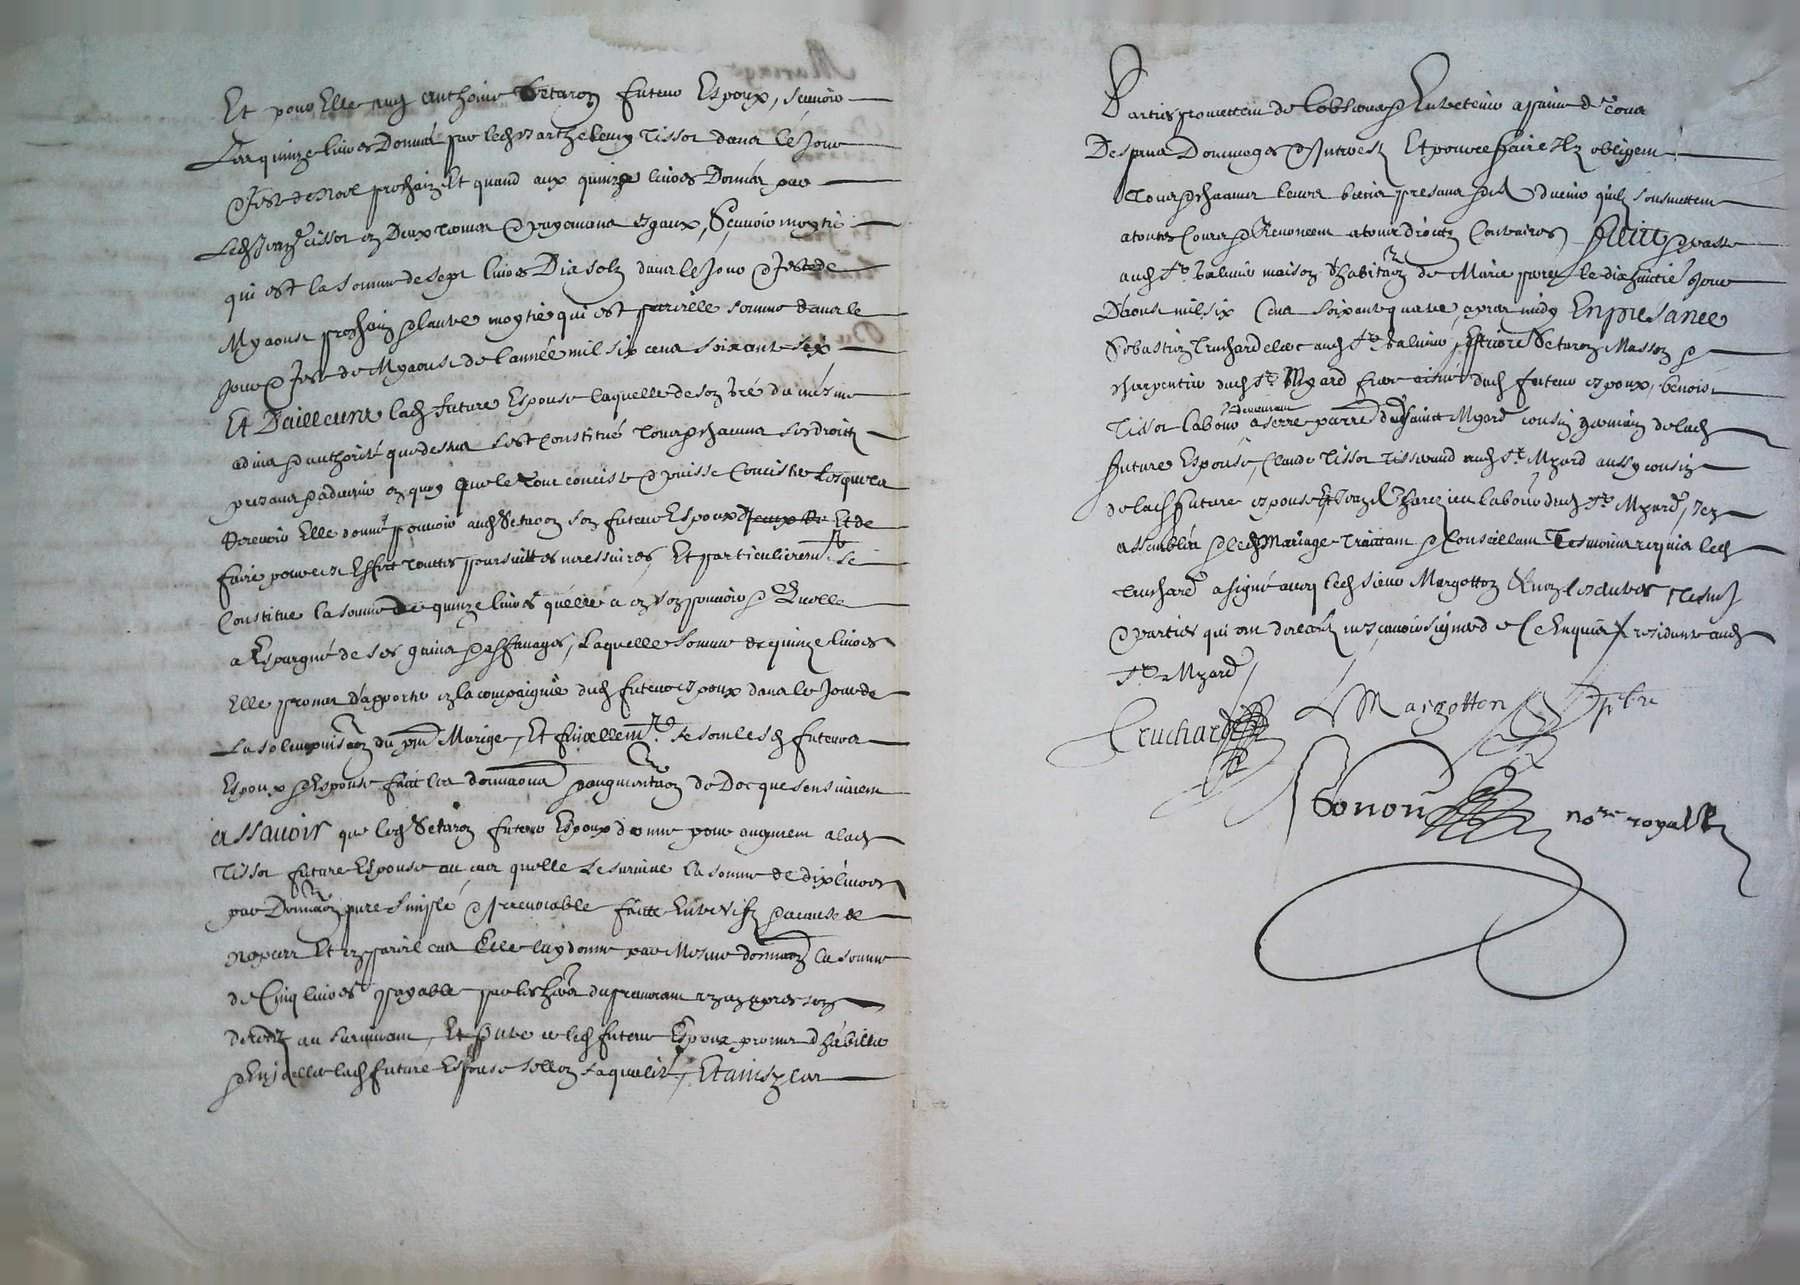 Et pour Elle aud anthoine Setaron futeur Espoux, scavoir
Les quinze livres Donnés par led Barthelemy Tissot dans le Jour
& feste de Noel prochain Et quand aux quinze livres Donnés par
Led Tissot en Deux termes & payemens esgaux, Scavoir moytié
qui est la somme de sept livres Dix solz dans le Jour & feste de
Myaoust prochain & lautre moytié qui est pareille somme dans le
Jour & feste de Myaoust de lannée mil six cens soixante six
Et Dailleurs lad future Espouse laquelle de son gré du mesme
advis & authorité que dessus sest constitué tous & chacuns ses droictz
presans & advenir en quoy que le tout conciste & puisse Concister Lesquels
Recevoir Elle donne pouvoir aud Setaron son futeur Espoux Et de
faire pour ce Effect touttes poursuittes necessaires, Et particulieremt se
Constitue la somme De quinze livres quelle a en son pouvoir & Quelle
a Espargné de ses gains & affanages, Laquelle somme de quinze livres
Elle promet dapporter en la compaignie dud futeur espoux dans le Jour de
La solempnisaon du pnt Marige, Et finallemt. se sont lesd futeurs
Espoux & Espouse faict les donnaons & augmentaon de Dot que sensuivent
assauoir que led Setaron futeur Espoux donne pour augment a lad
Tissot future Espouse au cas quelle le survive La somme de dix livres
par Donnaon pure simple & Irrevocable faitte Entre vifz & a cause de
nopces Et en pareil cas Elle luy donne par Mesme donnaon la somme
de Cinq livres payable par les hers du premourant un an apres son
deces au survivant, Et outre ce led futeur Espoux promet dhabiller
& Enjoeller lad future Espouse sellon sa qualité, Et ainsy les
Parties promettent de lobserver & Entretenir a paine de tous
Despens Dommages & Interestz Et pour ce faire Ilz obligent
tous & chacuns leurs biens presans & advenir quilz soubmettent
a toutes Cours & Renoncent a tous droictz Contraires, faict & passé
aud St. maison dhabitaon de le dix huictie Jour
Daoust mil six Cens soixante quatre, apres midy En presance
Sebastien Truchard clerc aud St. Setaron Masson &
charpentier dud St. Myard frere dud futeur espoux, benoist
Tissot labour demeurant a Serre parre de sainct Myard cousin germain de lad
future Espouse, Claude Tissot Tisserand aud St. Myard aussy cousin
de lad future espouse Et labour dud St. Myard, Icy
assemblés & led Mariage traictant & Conseillant Tesmoins requis led
truchard a signé avec led sieur Margotton & non les autres tesm
& parties qui ont declaré ne scavoir signer de Ce Enquis & residant aud
St. Myard
Truchard Margotton Pbre
nore royal